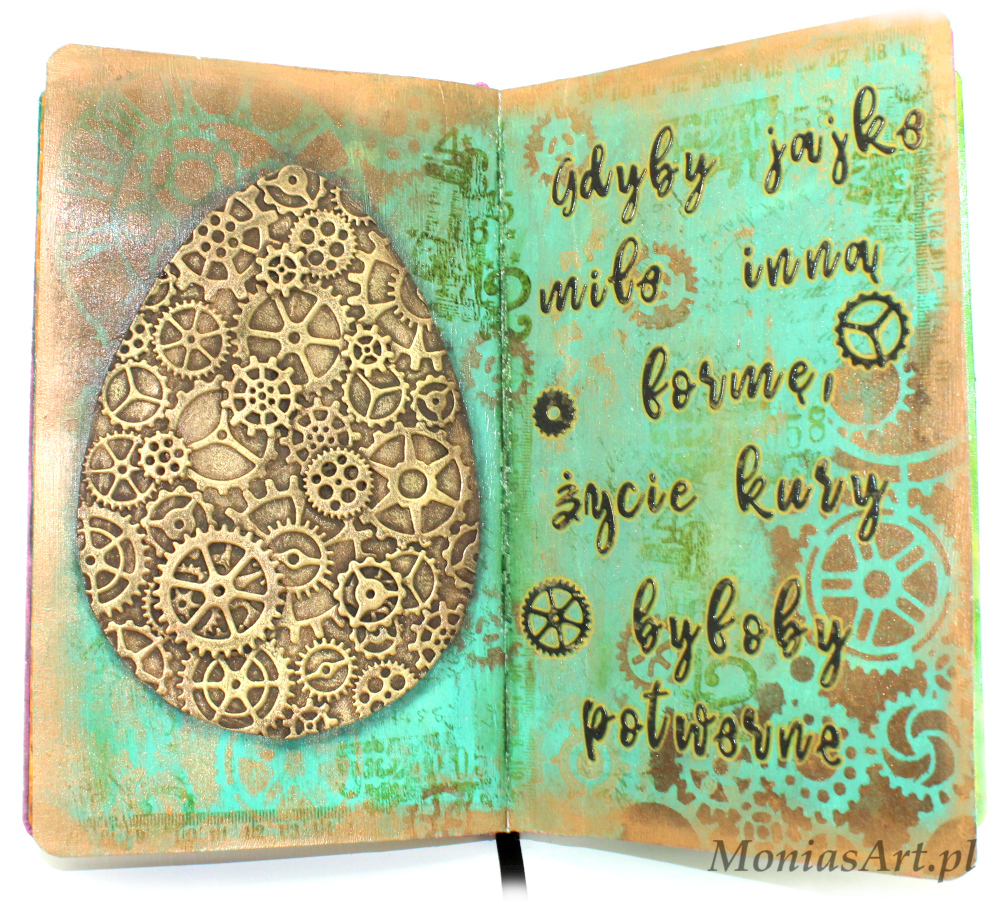 Gdyby jajko
miło inną
formę,
życie kury
byłoby
potworne
58
58
MoniasArt.pl